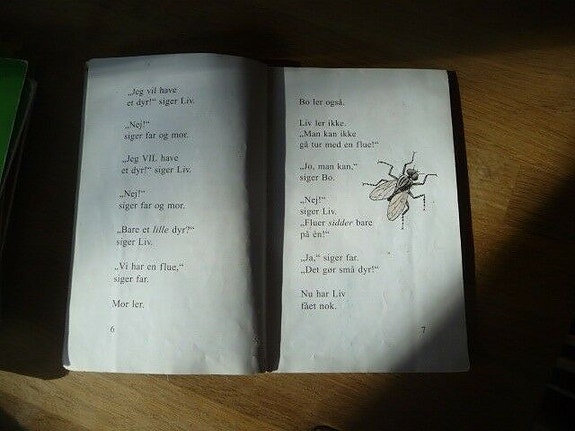 „Jeg vil have
et dyr!“ siger Liv.
„Nej!“
siger far og mor.
„Jeg VIL have
et dyr!“ siger Liv.
„Nej!“
siger far og mor.
„Bare et lille dyr?“
siger Liv.
„Vi har en flue,“
siger far.
Mor ler.
6
Bo ler også.
Liv ler ikke.
„Man kan ikke
gå tur med en flue!“
„Jo, man kan,“
siger Bo.
„Nej!“
siger Liv.
„Fluer sidder bare
på én!“
„Ja,“ siger far.
„Det gør små dyr!“
Nu har Liv
fået nok.
7